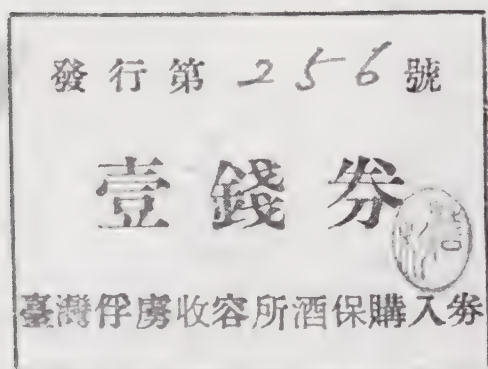 發行第 256 號
壹錢券
臺灣俘虜收容所酒保購入券